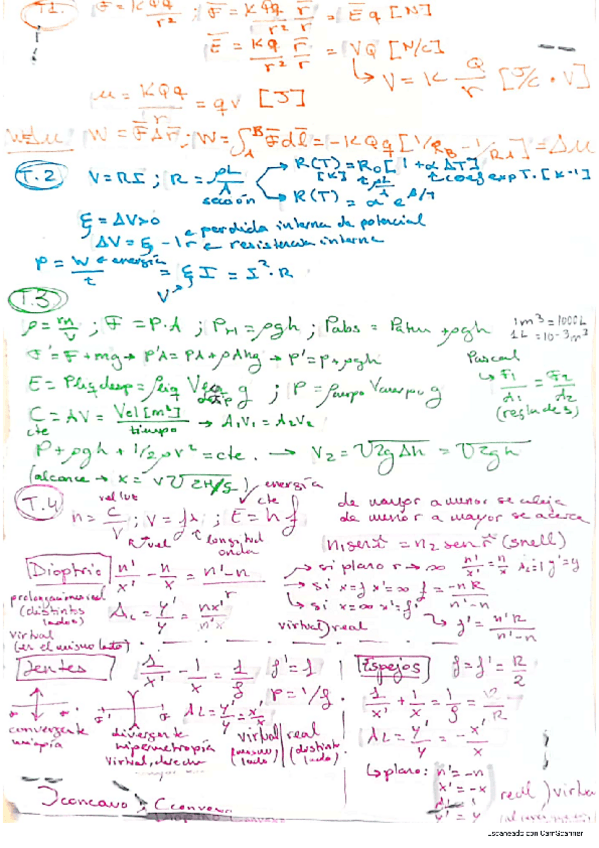 T.1. F = KQq/r²; F̄ = KQq/r² r̄/r = Ē q [N]
Ē = KQ/r² r̄/r = VQ [N/C]
↳ V = K Q/r [J/C · V]
μ = KQq/r = qV [J]
W=Δu W = F̄Δr̄; W = ∫_A^B F̄dl̄ = -KQq[1/R_B - 1/R_A] = Δu
T.2 V = RI; R = ρL/A → R(T) = R₀[1 + αΔT]
sección → R(T) = α e^β/T
coef exp T. [K⁻¹]
ξ = ΔV>0 perdida interna de potencial
ΔV = ξ - Ir ← resistencia interna
P = W/t ← energía = ξI = I²·R
V
T.3
ρ = m/V; F = P·A; P_H = ρgh; Pabs = Patm + ρgh
1m³ = 1000L
1L = 10⁻³m³
F' = F + mg → P'A = PA + ρAhg → P' = P + ρgh
Pascal
↳ F₁/A₁ = F₂/A₂
(regla de 3)
E = Pliq desp = ρliq Vliq desp g; P = ρcuerpo Vcuerpo g
C = AV = Vol[m³]/tiempo → A₁V₁ = A₂V₂
cte
P + ρgh + 1/2ρv² = cte. → V₂ = √2gΔh = √2gh
(alcance → x = v√2H/g)
T.4 n = c/v; v = fλ; E = hf
vel luz
energía
cte
longitud onda
de mayor a menor se aleja
de menor a mayor se acerca
n₁senî = n₂ senr̂ (snell)
Dioptrio n'/x' - n/x = n'-n/r
→ si plano r → ∞ n'/x' = n/x A_L=1 y'=y
→ si x=f x'=∞ f = -nR/n'-n
↳ si x=∞ x'=f' ↳ f' = n'R/n'-n
(distintos lados)
virtual
(en el mismo lado)
A_L = y'/y = nx'/n'x
virtual) real
Lentes 1/x' - 1/x = 1/f f'=f
P = 1/f'
AL = y'/y = x'/x
convergente
miopía
divergente
hipermetropía
virtual, derecha
virtual (mismo lado)
real (distinto lado)
Espejos f = f' = R/2
1/x' + 1/x = 1/f = 2/R
AL = y'/y = -x'/x
↳ plano: n' = -n
x' = -x
y' = y
real) virtual
) concavo; ( convexo
Escaneado con CamScanner